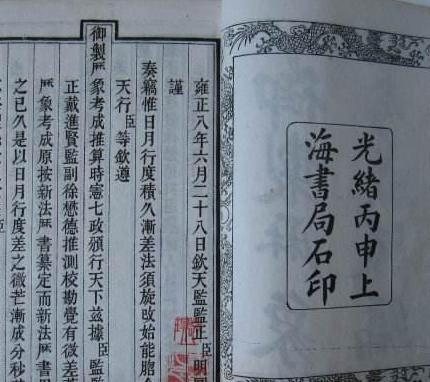 光緒丙申上
海書局石印
雍正八年六月二十八日欽天監監正臣明
謹
奏竊惟日月行度積久漸差法須旋改始能脗合
天行臣等欽遵
御製厤象考成推算時憲七政頒行天下茲據臣監
正戴進賢監副徐懋德推測校勘覺有微差
厤象考成原按新法厤書纂定而新法厤書
之已久是以日月行度差之微芒漸成分秒